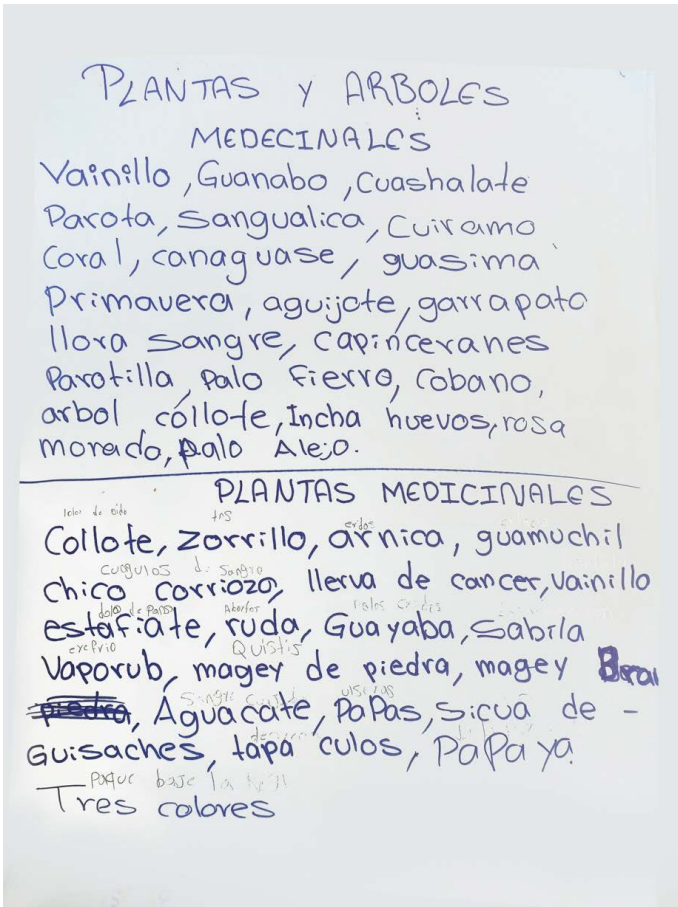 PLANTAS y ARBOLES
MEDECINALES
Vainillo, Guanabo, Cuashalate
Parota, Sangualica, Cuiramo
Coral, canaguase, guasima
Primavera, aguijote, garrapato
llora sangre, capinceranes
Parotilla, Palo Fierro, Cobano,
arbol cóllote, Incha huevos, rosa
morado, palo Alejo.
PLANTAS MEDICINALES
tos
Collote, zorrillo, árnica, guamuchil
cuagulos de sangre
chico corriozo, llerva de cancer, vainillo
Abortos
estafiate, ruda, Guayaba, Sabila
Quistis
Vaporub, magey de piedra, magey
piedra, Aguacate, PaPas, sicua de -
Guisaches, tapa culos, PaPaya
Paque baje la
Tres colores